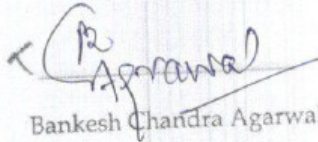 B Agrawal
Bankesh Chandra Agarwa